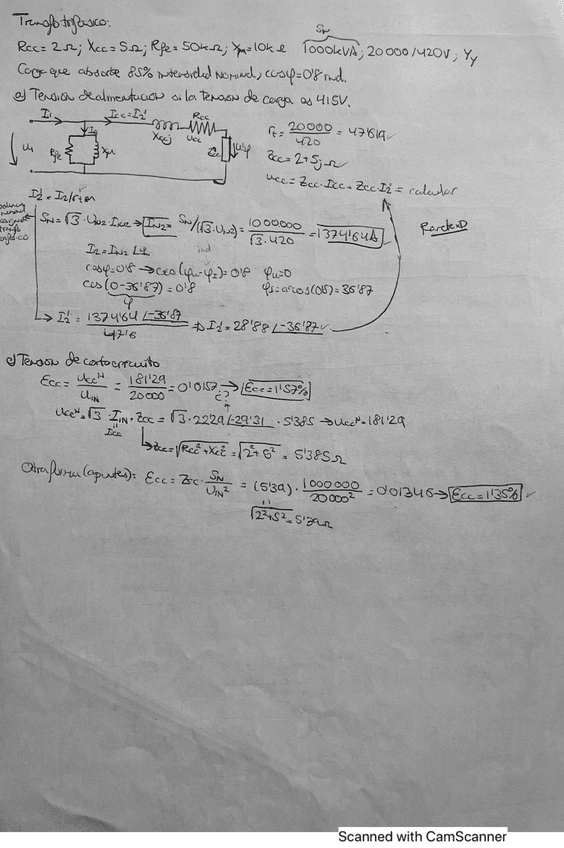 Transfo trifásico:
Sn
Rcc = 2Ω; Xcc = 5Ω; Rfe = 50kΩ; Xμ = 10kΩ 1000kVA; 20000/420V; Yy
Carga que absorbe 85% intensidad nominal, cosφ = 0'8 ind.
a) Tension de alimentacion si la tension de carga es 415V.
I1 Icc = I2' Rcc
I0 Xccj ucc
U1 Rfe Xμ Zc
rt = 20000/420 = 47'619
Zcc = 2+5j Ω
ucc = Zcc · Icc = Zcc I2' = calcular
I2' = I2/rtm
SN = √3 · UN2 IN2 → IN2 = SN/(√3·UN2) = 1000000/(√3·420) = 1374'64A
I2 = IN2 ∠φ ind
cosφ = 0'8 → cos(φu - φI) = 0'8 φu = 0
cos(0-36'87) = 0'8 φI = arcos(0'8) = 36'87
φ
I2' = 1374'64 ∠-36'87 / 47'6 → I2' = 28'88 ∠-36'87
c) Tension de cortocircuito
Ecc = uccN/U1N = 181'29/20000 = 0'0157 → Ecc = 1'57%
¿?
uccN = √3 · I1N · Zcc = √3 · 22'29 ∠-29'31 · 5'385 → uccN = 181'29
Icc
Zcc = √(Rcc² + Xcc²) = √(2²+5²) = 5'385Ω
Otra forma (apuntes): Ecc = Zcc · SN/U1N² = (5'39) · 1000000/20000² = 0'01346 → Ecc = 1'35%
√(2²+5²) = 5'39Ω
Scanned with CamScanner